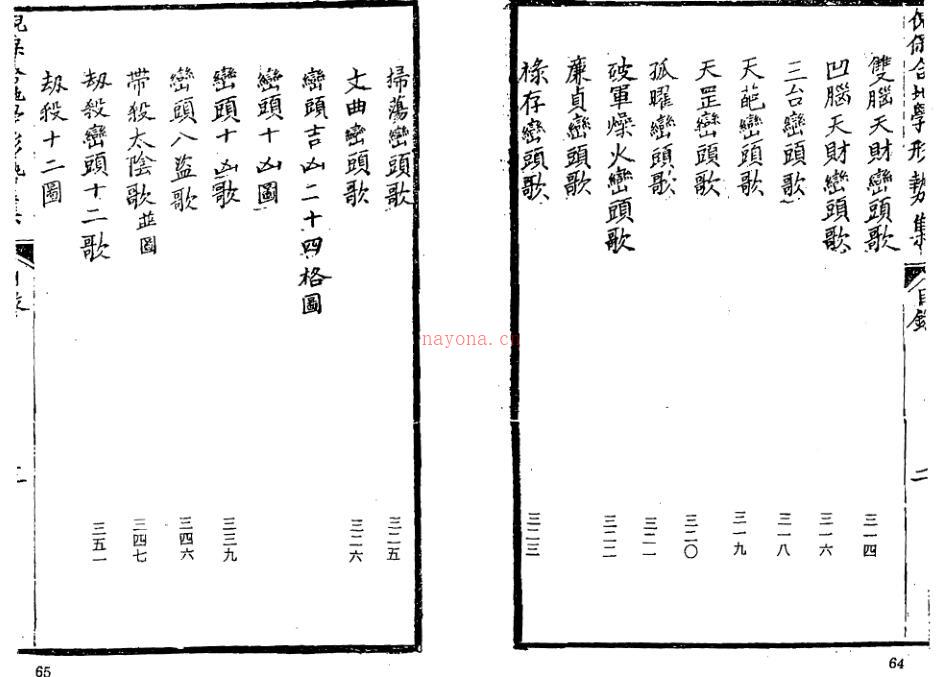 雙腦天財巒頭歌 三一四
凹腦天財巒頭歌 三一六
三台巒頭歌 三一八
天葩巒頭歌 三一九
天罡巒頭歌 三二〇
孤曜巒頭歌 三二一
破軍燥火巒頭歌 三二二
廉貞巒頭歌
祿存巒頭歌 三二三
合地學形勢集
目錄
二
64
掃蕩巒頭歌 三二五
文曲巒頭歌 三二六
巒頭吉凶二十四格圖
巒頭十凶圖
巒頭十凶歌 三三九
巒頭八盜歌 三四六
帶殺太陰歌並圖 三四七
刼殺巒頭十二歌 三五一
刼殺十二圖
65
nayona.cn